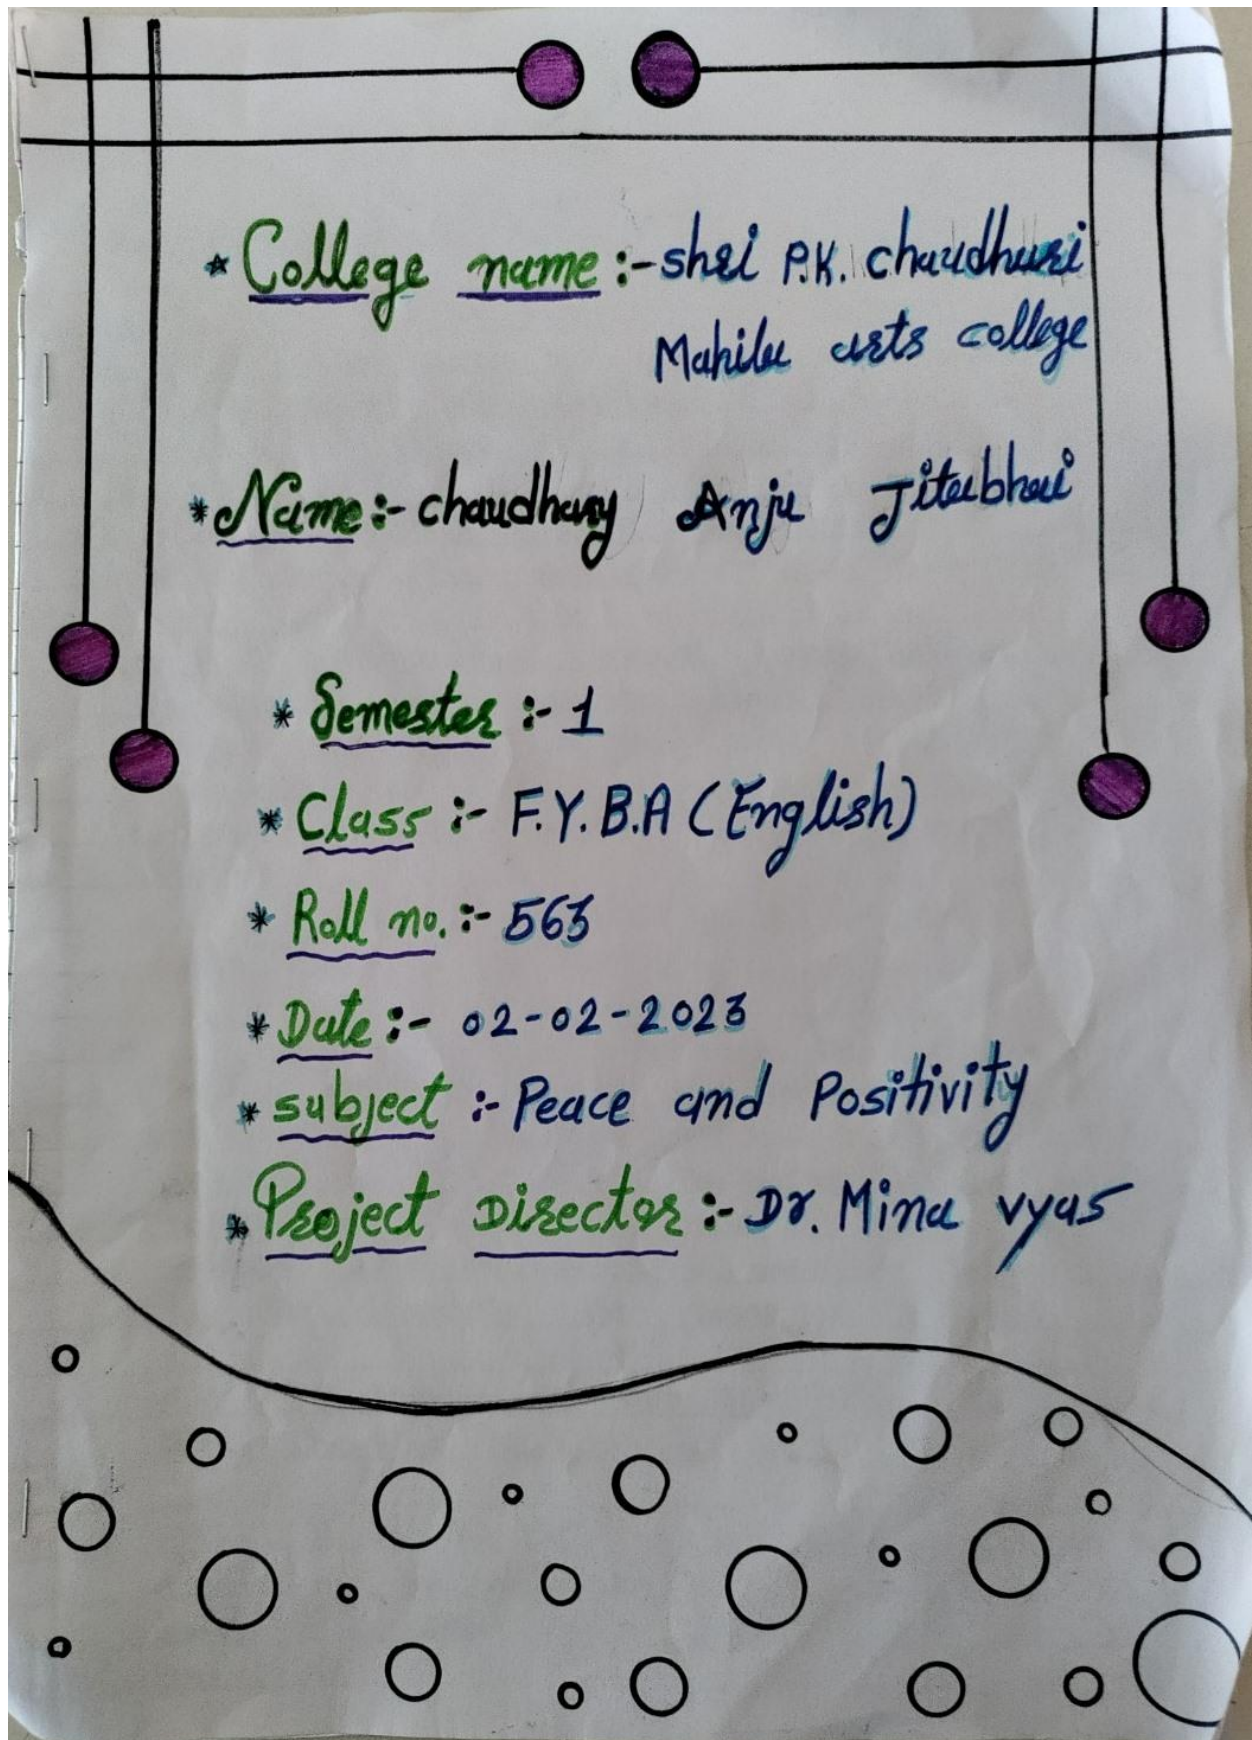 * College name :- shri P.K. chaudhuri
Mahila arts college
* Name :- chaudhary Anju Jitubhai
* Semester :- 1
* Class :- F.Y.B.A (English)
* Roll no. :- 563
* Date :- 02-02-2023
* subject :- Peace and Positivity
* Project Director :- Dr. Mina vyas